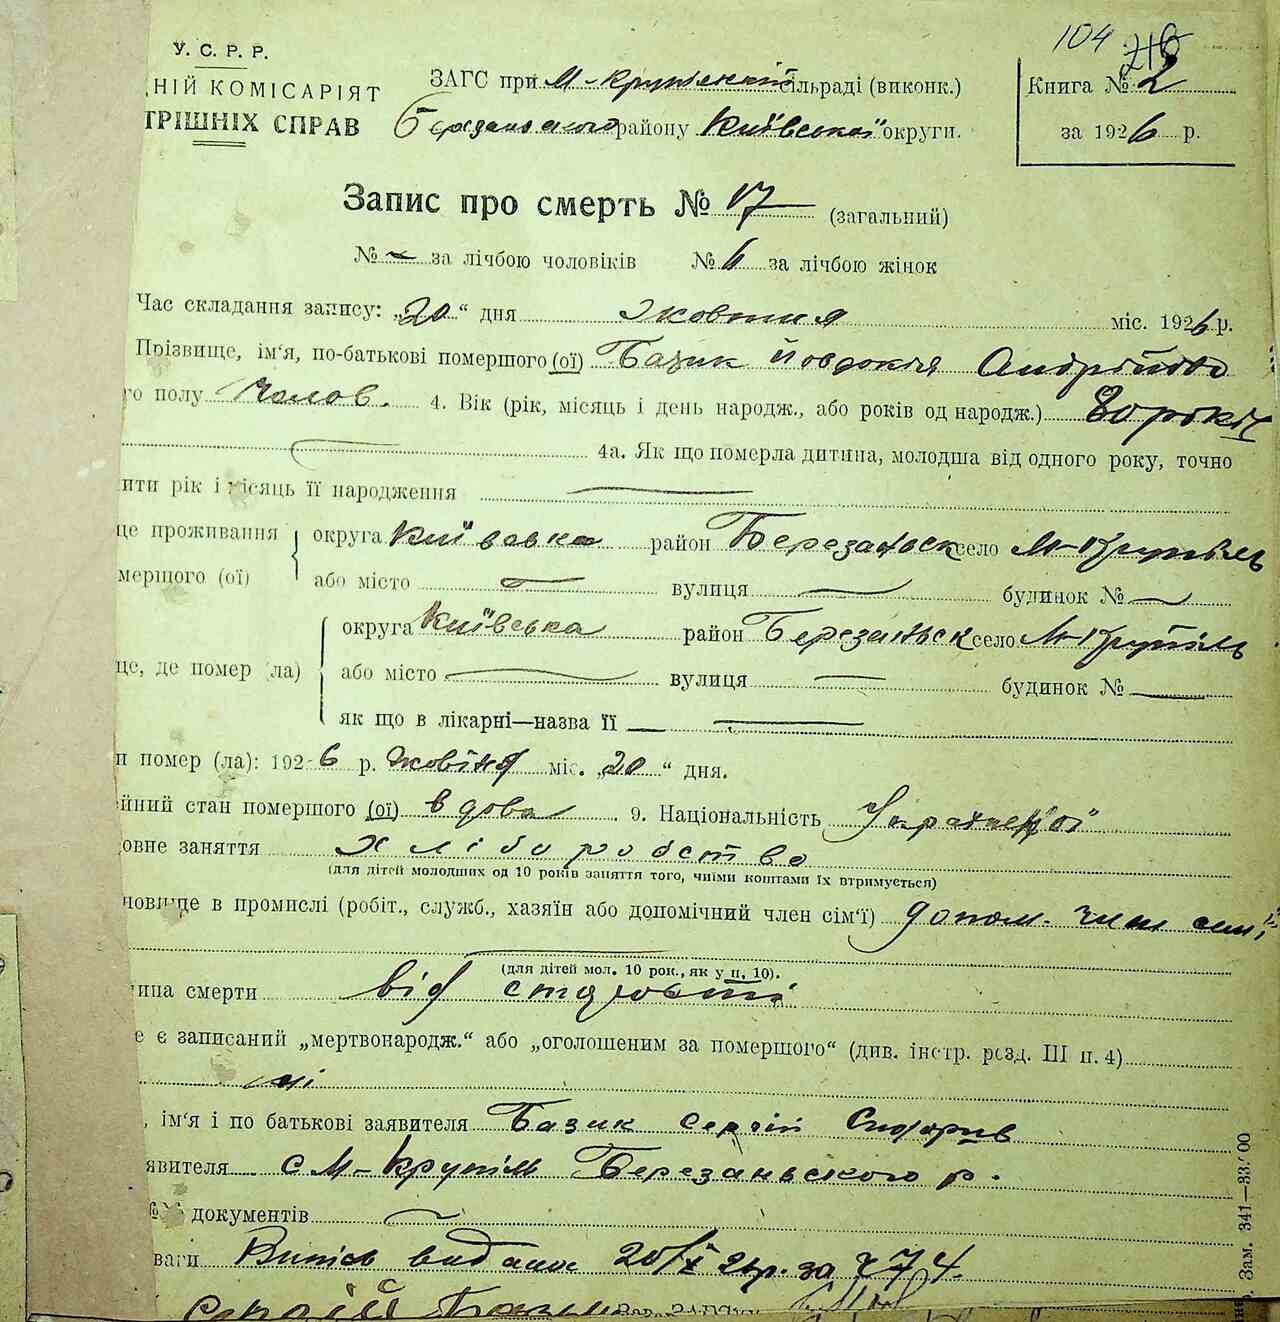 104 216
У. С. Р. Р.
ДНІЙ КОМІСАРІЯТ
ТРІШНІХ СПРАВ
ЗАГС при М-Крупільській сільраді (виконк.)
Березанського району Київської округи.
Книга № 2
за 1926 р.
Запис про смерть № 17 (загальний)
№ – за лічбою чоловіків № 6 за лічбою жінок
Час складання запису: „20“ дня жовтня міс. 1926 р.
Прізвище, ім‘я, по-батькові помершого (ої) Базик Йовдокія Андрійова
го полу Чолов. 4. Вік (рік, місяць і день народж., або років од народж.) 80 років
4а. Як що померла дитина, молодша від одного року, точно
ити рік і місяць її народження
це проживання
мершого (ої)
округа Київська район Березанськ село М-Крупіль
або місто вулиця будинок №
це, де помер (ла)
округа Київська район Березанськ село М-Крупіль
або місто вулиця будинок №
як що в лікарні—назва її
и помер (ла): 1926 р. жовтня міс. „20“ дня.
ейний стан помершого (ої) вдова 9. Національність
овне заняття хліборобство
(для дітей молодших од 10 років заняття того, чиїми коштами їх втримується)
новище в промислі (робіт., служб., хазяїн або допомічний член сім‘ї) допом. член сімї
(для дітей мол. 10 рок., як у п. 10).
чина смерти від старости
е є записаний „мертвонародж.“ або „оголошеним за помершого“ (див. інстр. розд. III п. 4)
ні
, ім‘я і по батькові заявителя Базик Сергій Сидорів
явителя с М-Крупіль Березанського р.
№№ документів
ваги Випись видана 20/X 26р. за № 74.
Сергій Базик Зав. ЗАГСУ
Зам. 341—33.00